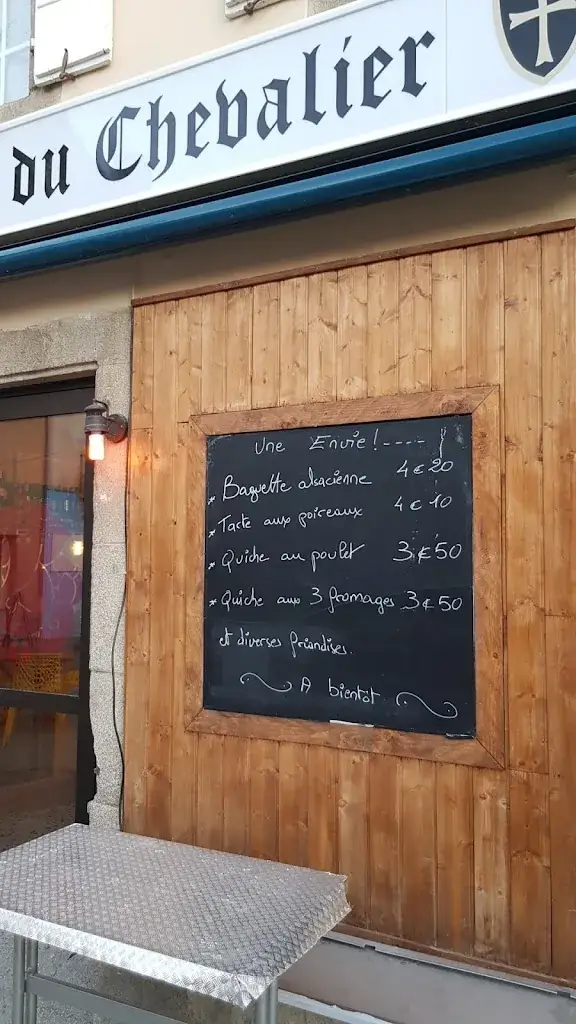 du Chevalier
Une Envie!----
* Baguette alsacienne 4€20
* Tarte aux poireaux 4€10
* Quiche au poulet 3€50
* Quiche aux 3 fromages 3€50
et diverses friandises.
A bientôt